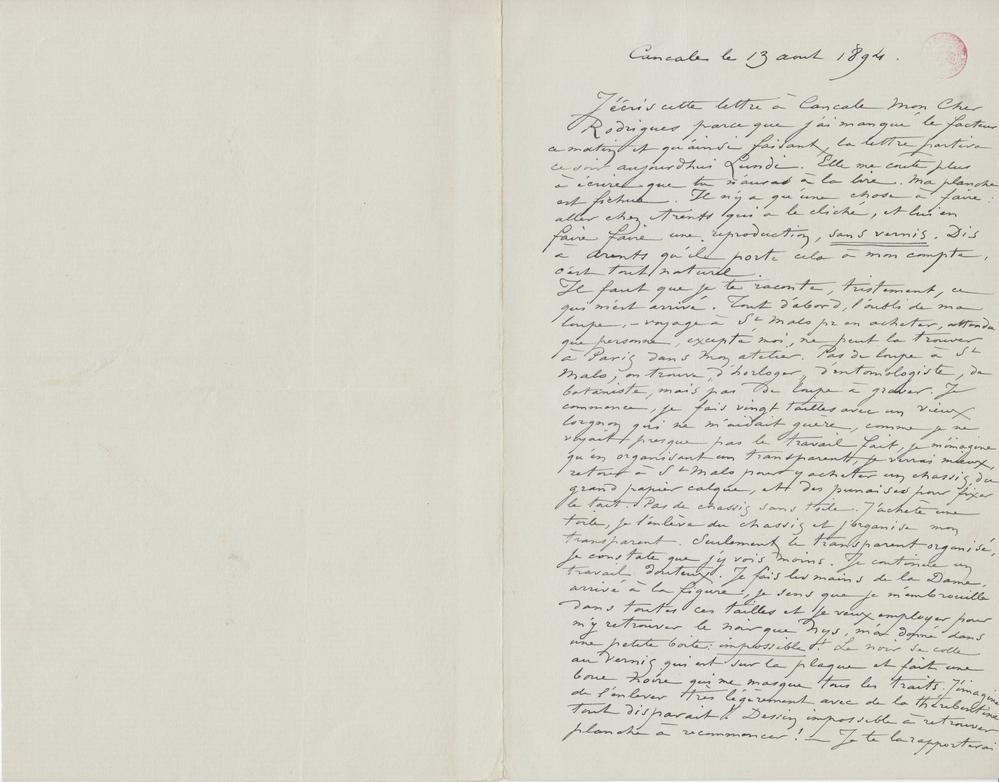 Cancale le 13 aout 1894.
J'écris cette lettre à Cancale Mon Cher
Rodrigues parce que j'ai manqué le facteur
ce matin et qu'ainsi faisant, la lettre partira
ce soir aujourdhui Lundi. Elle me coute plus
à écrire que tu n'auras à la lire. Ma planche
est fichue. Il n'y a qu'une chose à faire:
aller chez Arents qui a le cliché, et lui en
faire faire une reproduction, sans vernis. Dis
à Arents qu'il porte cela à mon compte,
c'est tout naturel.
Il faut que je te raconte, tristement, ce
qui m'est arrivé. Tout d'abord, l'oubli de ma
loupe, - voyage à St Malo pr en acheter, attendu
que personne, excepté moi, ne peut la trouver
à Paris dans mon atelier. Pas de loupe à St
Malo, on trouve, d'horloger, d'entomologiste, de
botaniste, mais pas de loupe à graver. Je
commence, je fais vingt tailles avec un vieux
lorgnon qui ne m'aidait guère, comme je ne
voyait presque pas le travail fait, je m'imagine
qu'en organisant un transparent, je verrai mieux,
retour à St Malo pour y acheter un chassis, du
grand papier calque, et des punaises pour fixer
le tout. Pas de chassis sans toile. J'achète une
toile, je l'enlève du chassis et j'organise mon
transparent. Seulement le transparent organisé,
je constate que j'y vois moins. Je continue un
travail douteux. Je fais les mains de la Dame,
arrivé à la figure, je sens que je m'embrouille
dans toutes ces tailles et je veux employer pour
m'y retrouver le noir que Nys, m'a donné dans
une petite boite: impossible! Le noir se colle
au vernis qui est sur la plaque et fait une
boue noire qui me masque tous les traits. J'imagine
de l'enlever très légèrement avec de la thérébentine
tout disparait! Dessin impossible à retrouver
planche à recommencer! — Je te la rapporterai